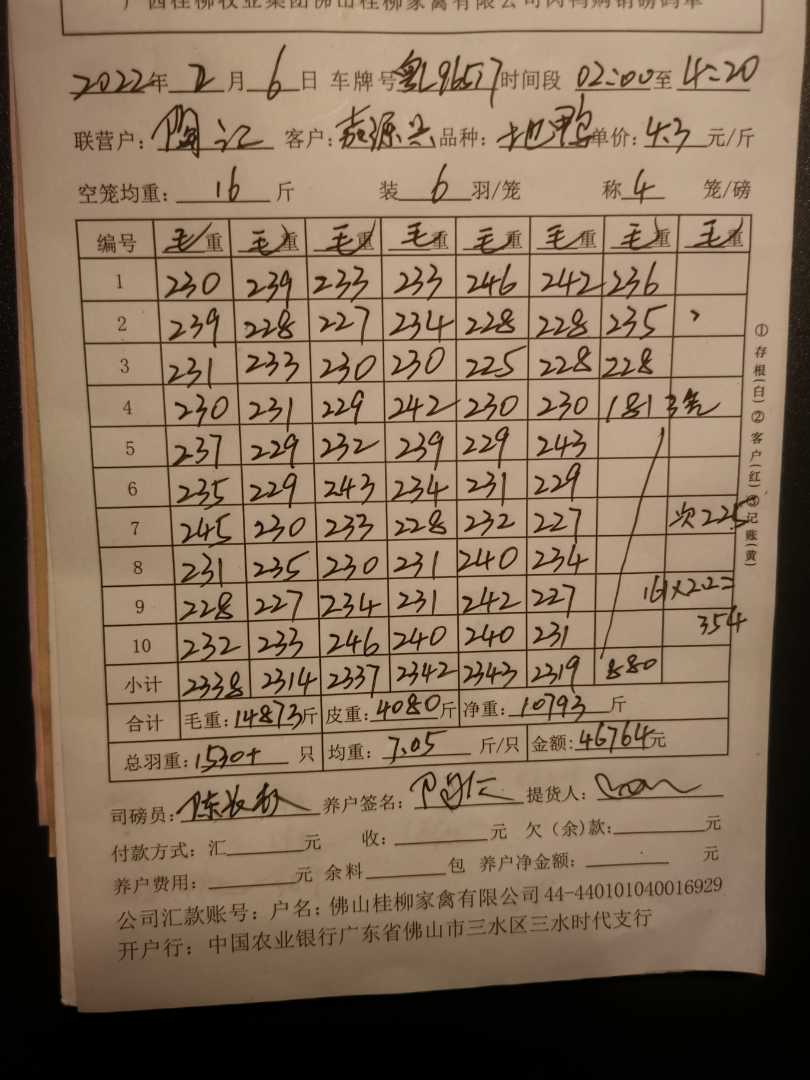 广西桂柳牧业集团佛山桂柳家禽有限公司肉鸭购销磅码单
2022年 2月 6日 车牌号 粤L96517 时间段 02:00至 4:20
联营户: 陶记 客户: 嘉源兴 品种: 土也鸭 单价: 4.3 元/斤
空笼均重: 16 斤 装 6 羽/笼 称 4 笼/磅
编号 毛重 毛重 毛重 毛重 毛重 毛重 毛重 毛重
1 230 239 233 233 246 242 236
2 239 228 227 234 228 228 235
3 231 233 230 230 225 228 228
4 230 231 229 242 230 230 181 3笼
5 237 229 232 239 229 243
6 235 229 243 234 231 229
7 245 230 233 228 232 227 次225
8 231 235 230 231 240 234
9 228 227 234 231 242 227 161×2.2=
10 232 233 246 240 240 231 354
小计 2338 2314 2337 2342 2343 2319 880
合计 毛重: 14873斤 皮重: 4080斤 净重: 10793斤
总羽重: 1530+ 只 均重: 7.05 斤/只 金额: 46764元
司磅员: 养户签名: 提货人:
付款方式: 汇 元 收: 元 欠(余)款: 元
养户费用: 元 余料 包 养户净金额: 元
公司汇款账号: 户名: 佛山桂柳家禽有限公司 44-440101040016929
开户行: 中国农业银行广东省佛山市三水区三水时代支行
①存根(白)②客户(红)③记账(黄)